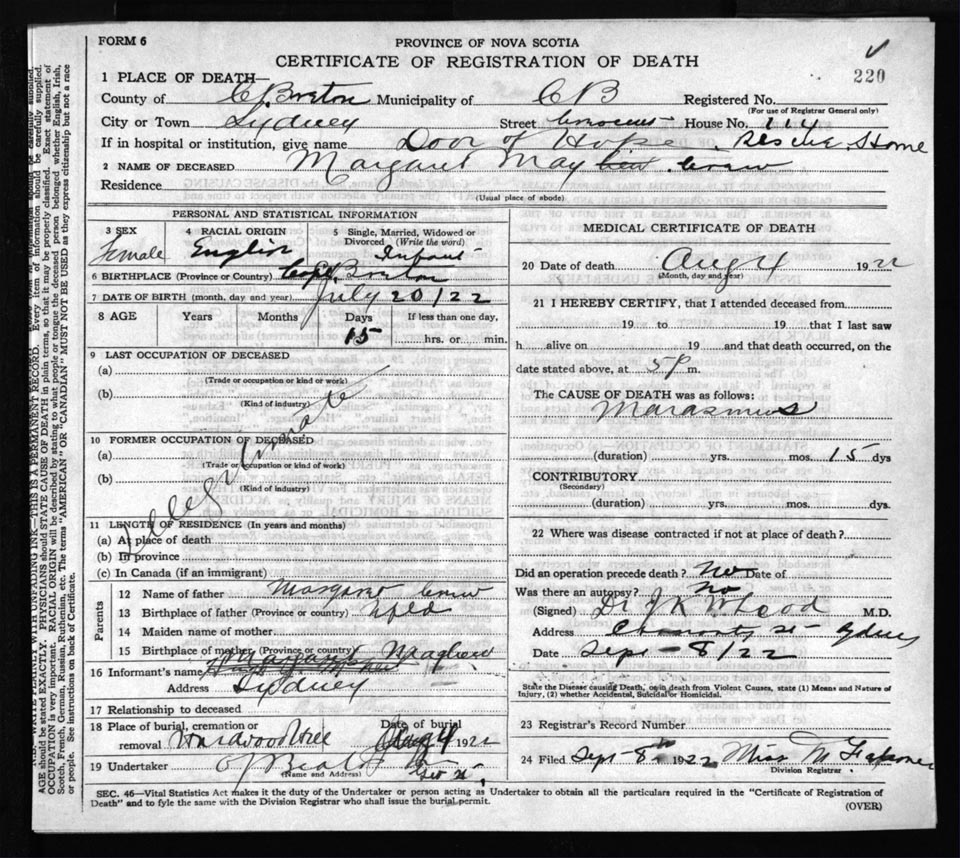 FORM 6
PROVINCE OF NOVA SCOTIA
CERTIFICATE OF REGISTRATION OF DEATH
220
1 PLACE OF DEATH—
County of C. Breton Municipality of C B Registered No.
(For use of Registrar General only)
City or Town Sydney Street House No. 114
If in hospital or institution, give name Door of Hope Rescue Home
2 NAME OF DECEASED Margaret May Crew
Residence
(Usual place of abode)
PERSONAL AND STATISTICAL INFORMATION
3 SEX Female
4 RACIAL ORIGIN English
5 Single, Married, Widowed or Divorced (Write the word) Infant
6 BIRTHPLACE (Province or Country) Cape Breton
7 DATE OF BIRTH (month, day and year) July 20/22
8 AGE Years Months Days If less than one day,
15 hrs. or min.
9 LAST OCCUPATION OF DECEASED
(a)
(Trade or occupation or kind or work)
(b)
(Kind of industry)
10 FORMER OCCUPATION OF DECEASED
(a)
(Trade or occupation or kind of work)
(b)
(Kind of industry)
Illegitimate
11 LENGTH OF RESIDENCE (In years and months)
(a) At place of death
(b) In province
(c) In Canada (if an immigrant)
Parents
12 Name of father Margaret Crew
13 Birthplace of father (Province or country) Nfld
14 Maiden name of mother
15 Birthplace of mother (Province or country)
16 Informant's name Margaret
Address Sydney
17 Relationship to deceased
18 Place of burial, cremation or removal Hardwood Hill Date of burial Aug 4 1922
19 Undertaker
(Name and Address)
MEDICAL CERTIFICATE OF DEATH
20 Date of death Aug 4 1922
(Month, day and year)
21 I HEREBY CERTIFY, that I attended deceased from
19 to 19 that I last saw
h alive on 19 and that death occurred, on the
date stated above, at 5 P m.
The CAUSE OF DEATH was as follows:
Marasmus
(duration) yrs. mos. 15 dys
CONTRIBUTORY
(Secondary)
(duration) yrs. mos. dys.
22 Where was disease contracted if not at place of death?
Did an operation precede death? No Date of
Was there an autopsy? No
(Signed) Dr J K M.D.
Address St Sydney
Date Sept 8/22
State the Disease causing Death, or in death from Violent Causes, state (1) Means and Nature of
Injury, (2) whether Accidental, Suicidal or Homicidal.
23 Registrar's Record Number
24 Filed Sept 8th 1922 Miss M
Division Registrar
SEC. 46—Vital Statistics Act makes it the duty of the Undertaker or person acting as Undertaker to obtain all the particulars required in the "Certificate of Registration of
Death" and to fyle the same with the Division Registrar who shall issue the burial permit.
(OVER)
WRITE PLAINLY WITH UNFADING INK—THIS IS A PERMANENT RECORD. Every item of information should be carefully supplied.
AGE should be stated EXACTLY. PHYSICIANS should STATE CAUSE OF DEATH in plain terms, so that it may be properly classified. Exact statement of
OCCUPATION is very important. RACIAL ORIGIN will be described by stating to what people or tongue the deceased person belonged whether English, Irish,
Scotch, French, German, Russian, Ruthenian, etc. The terms "AMERICAN" OR "CANADIAN" MUST NOT BE USED as they express citizenship but not a race
or people. See instructions on back of Certificate.